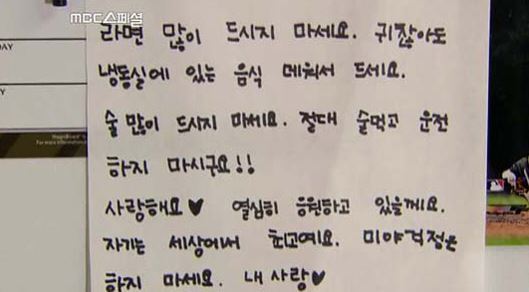 MBC스페셜
라면 많이 드시지 마세요. 귀찮아도
냉동실에 있는 음식 데워서 드세요.
술 많이 드시지 마세요. 절대 술먹고 운전
하지 마시구요!!
사랑해요♥ 열심히 응원하고 있을께요.
자기는 세상에서 최고예요. 미야걱정은
하지 마세요. 내 사랑♥